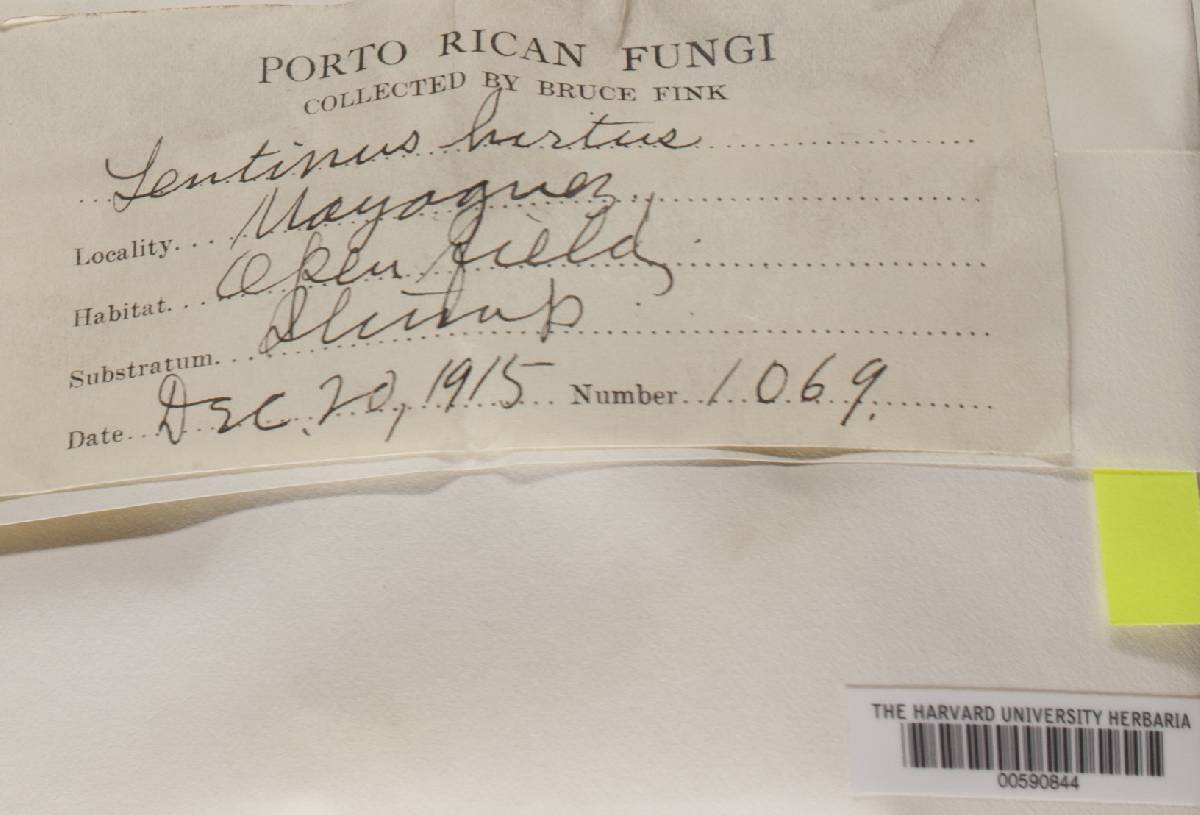 PORTO RICAN FUNGI
COLLECTED BY BRUCE FINK
Lentinus hirtus
Locality... Mayaguez
Habitat... Open field,
Substratum...
Date... Dec. 20, 1915 Number.. 1069.
THE HARVARD UNIVERSITY HERBARIA
00590844